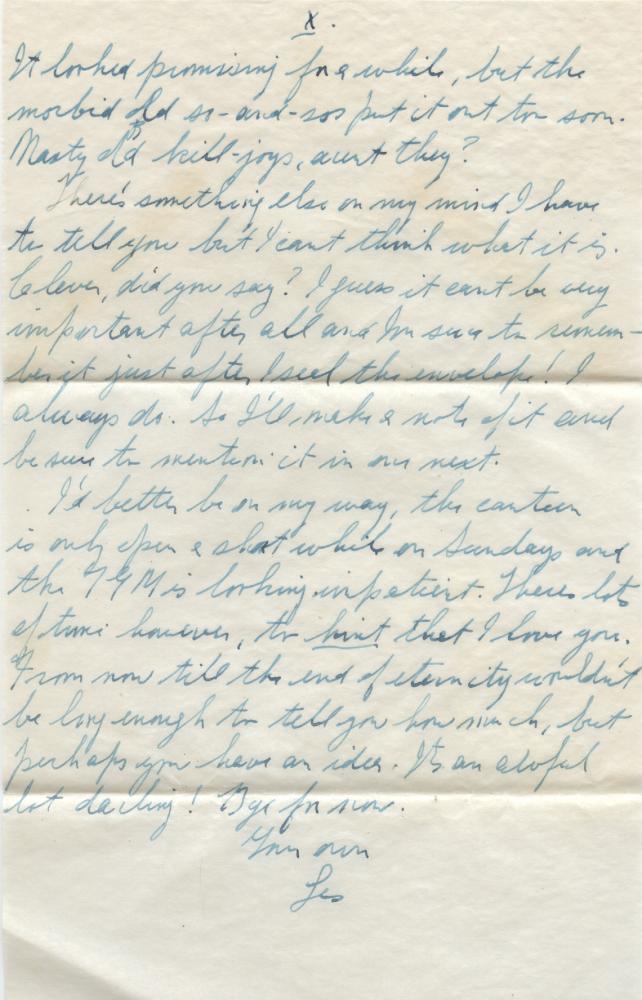 X.
It looked promising for a while, but the
morbid old so-and-sos put it out too soon.
Nasty old kill-joys, arent they?
There's something else on my mind I have
to tell you but I cant think what it is.
Clever, did you say? I guess it cant be very
important after all and I'm sure to remem-
ber it just after I seal the envelope! I
always do. So I'll make a note of it and
be sure to mention it in our next.
I'd better be on my way, the canteen
is only open a short while on Sundays and
the TGM is looking impatient. There's lots
of time however, to hint that I love you.
From now till the end of eternity wouldn't
be long enough to tell you how much, but
perhaps you have an idea. It's an awful
lot darling! Bye for now.
Your own
Les